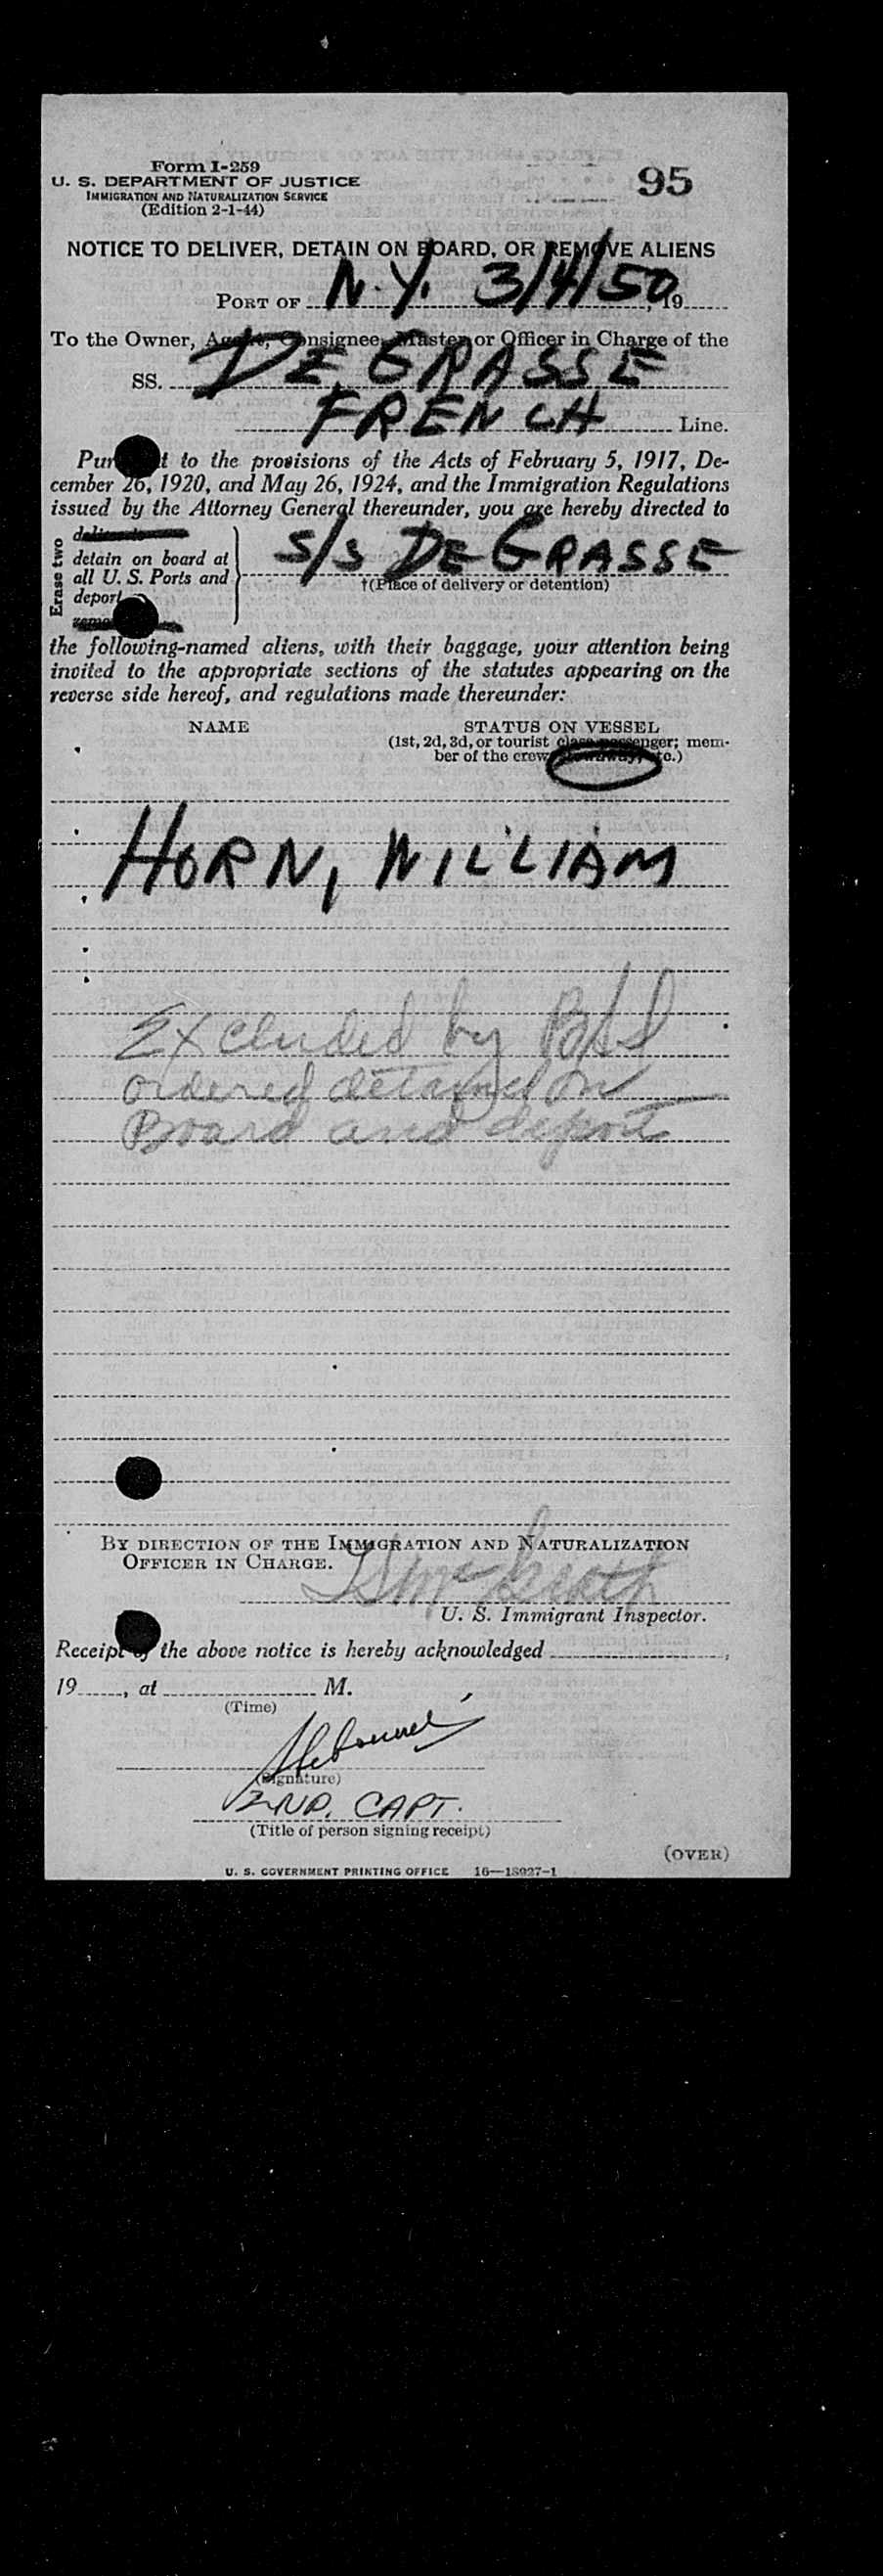 Form I-259
U. S. DEPARTMENT OF JUSTICE
IMMIGRATION AND NATURALIZATION SERVICE
(Edition 2-1-44)
95
NOTICE TO DELIVER, DETAIN ON BOARD, OR REMOVE ALIENS
PORT OF N.Y. 3/4/50, 19
To the Owner, Agent, Consignee, Master or Officer in Charge of the
SS. DE GRASSE
FRENCH Line.
Pursuant to the provisions of the Acts of February 5, 1917, De-
cember 26, 1920, and May 26, 1924, and the Immigration Regulations
issued by the Attorney General thereunder, you are hereby directed to
Erase two
detain on board at
all U. S. Ports and
deport
S/S DE GRASSE
†(Place of delivery or detention)
the following-named aliens, with their baggage, your attention being
invited to the appropriate sections of the statutes appearing on the
reverse side hereof, and regulations made thereunder:
NAME STATUS ON VESSEL
(1st, 2d, 3d, or tourist class passenger; mem-
ber of the crew, stowaway, etc.)
HORN, WILLIAM
Excluded by BSI
ordered detained on
Board and deport
BY DIRECTION OF THE IMMIGRATION AND NATURALIZATION
OFFICER IN CHARGE.
U. S. Immigrant Inspector.
Receipt of the above notice is hereby acknowledged ,
19 , at M.
(Time)
(Signature)
2ND. CAPT.
(Title of person signing receipt)
(OVER)
U. S. GOVERNMENT PRINTING OFFICE 16—18927-1